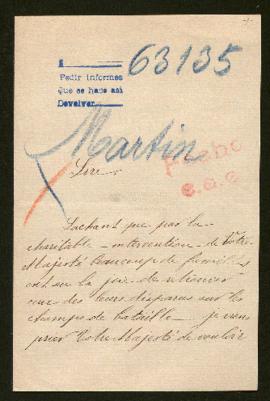 63135
Pedir informes
Que se hace así
Devolver
Martin
Fecho
Sire
Sachant que par la
charitable intervention de Votre
Majesté beaucoup de familles
ont eu la joie de
ceux des leurs disparus sur les
champs de bataille je viens
prier Votre Majesté de vouloir